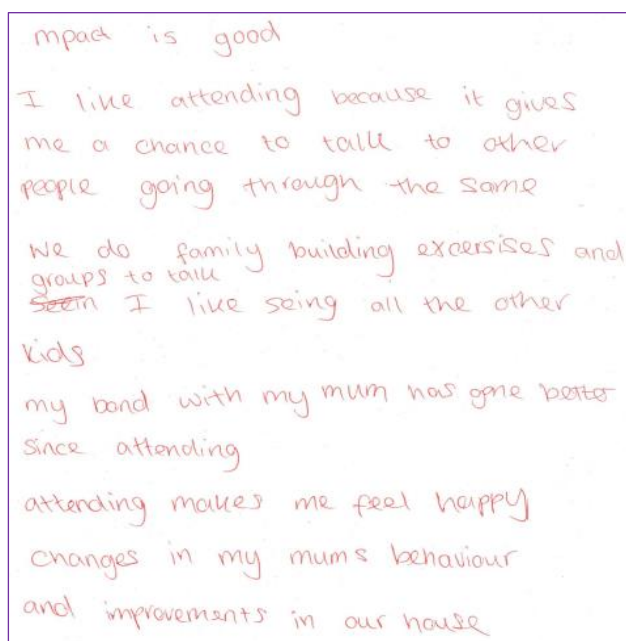 mpact is good
I like attending because it gives
me a chance to talk to other
people going through the same
we do family building excersises and
groups to talk
I like seing all the other
kids
my bond with my mum has gone better
since attending
attending makes me feel happy
changes in my mums behaviour
and improvements in our house